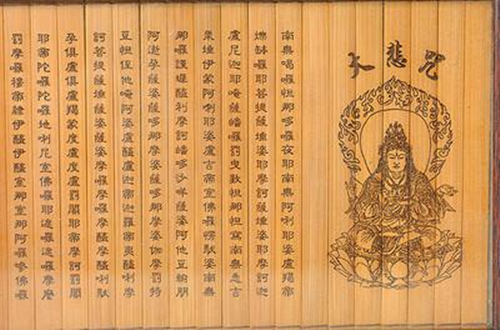 大悲咒
南無喝囉怛那哆囉夜耶南無阿唎耶婆盧羯帝
爍缽囉耶菩提薩埵婆耶摩訶薩埵婆耶摩訶迦
盧尼迦耶唵薩皤囉罰曳數怛那怛寫南無悉吉
栗埵伊蒙阿唎耶婆盧吉帝室佛囉楞馱婆南無
那囉謹墀醯利摩訶皤哆沙咩薩婆阿他豆輸朋
阿逝孕薩婆薩哆那摩婆薩哆那摩婆伽摩罰特
豆怛侄他唵阿婆盧醯盧迦帝迦囉帝夷醯唎摩
訶菩提薩埵薩婆薩婆摩囉摩囉摩醯摩醯唎馱
孕俱盧俱盧羯蒙度盧度盧罰闍耶帝摩訶罰闍
耶帝陀囉陀囉地唎尼室佛囉耶遮囉遮囉摩麼
罰摩囉穆帝隸伊醯伊醯室那室那阿囉參佛囉